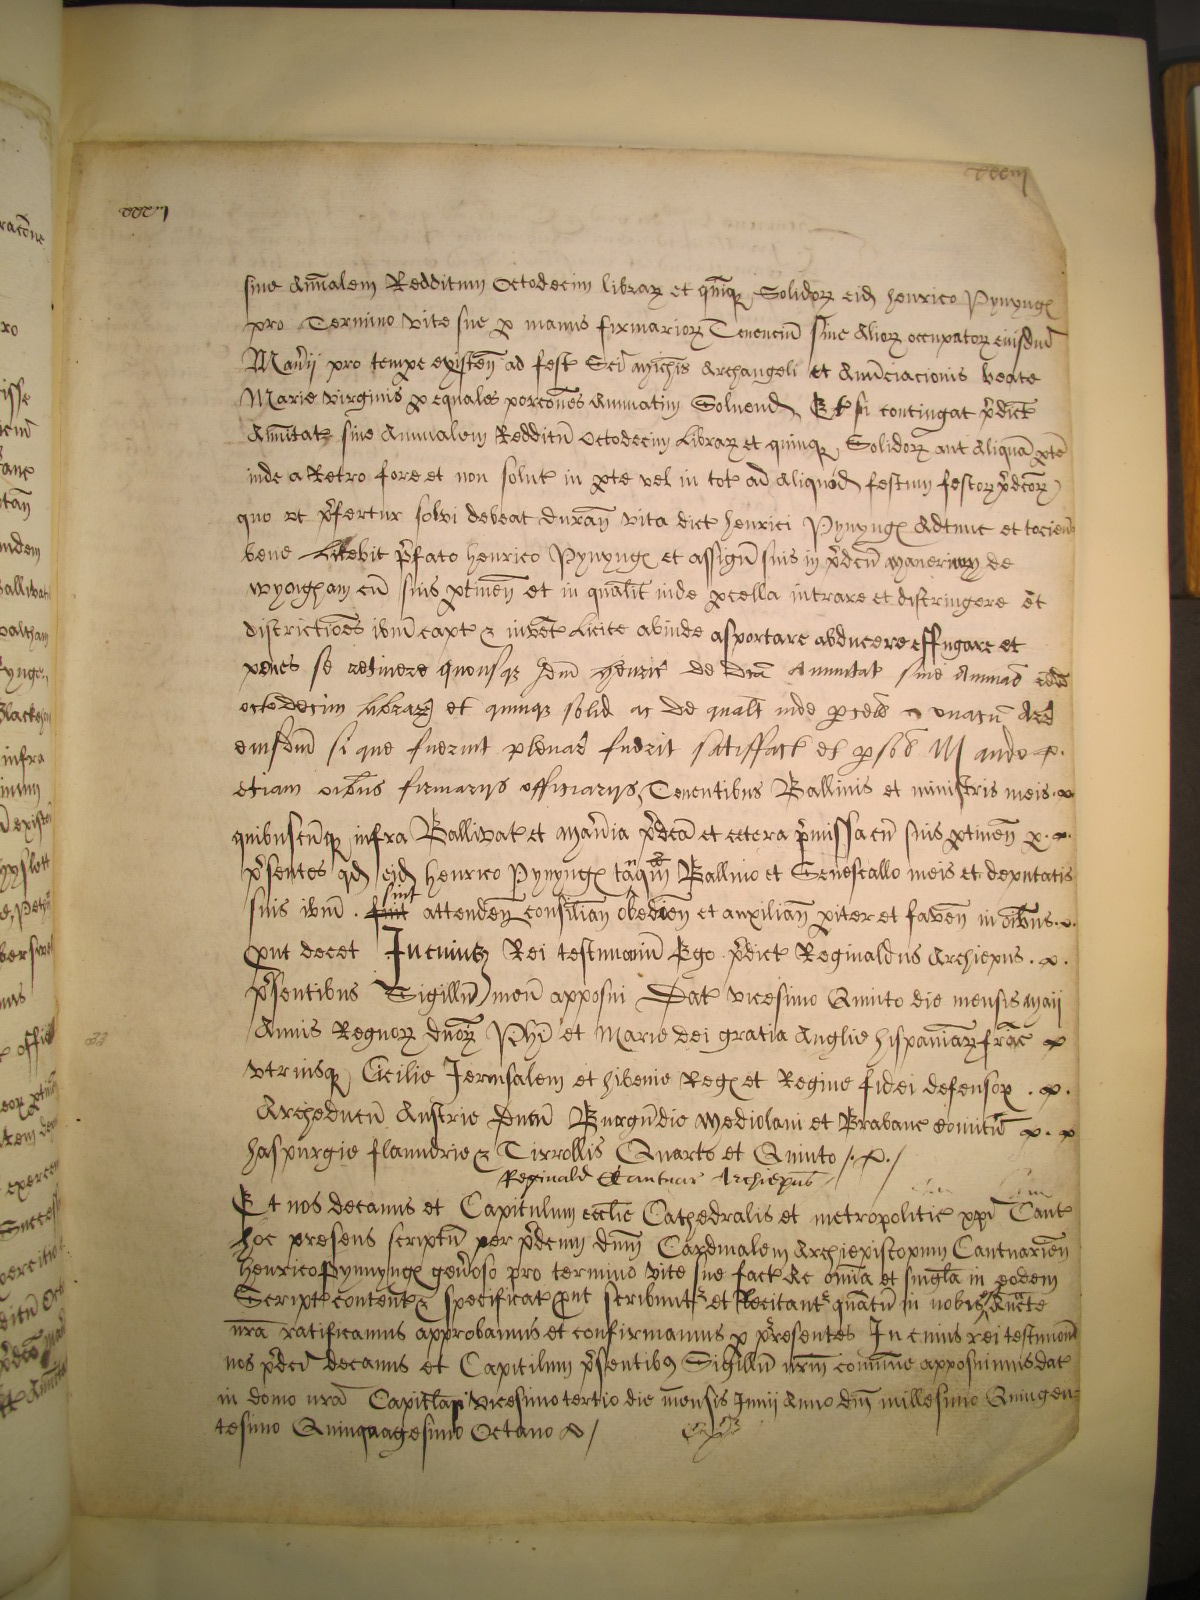 sive Annualem Redditum Octodecim librar et quinq Solidor eid henrico Pynyng
pro Termino vite sue p manus firmarior Tenenciu sive Alior occupator eiusdm
Manii pro tempe existen ad fest Sci Michis Archangeli et Annuciacionis beate
Marie virginis p equales porcones Annuatim Solvend Et si contingat pdict
Annuitat sive Annualem Redditu Octodecim Librar et quinq Solidor aut Aliqua pte
inde a Retro fore et non solut in pte vel in tot ad Aliquod festum festor pdcor
quo ut pfertur solvi debeat duran vita dict henrici Pynyng Adtunc et tociens
bene Licebit pfato henrico Pynyng et assign suis in pdcu Manerium de
Wyngham cu suis ptinen et in qualit inde pcella intrare et distringere et
districtiones ibm capt & invet Licite abinde asportare abducere effugare et
penes se retinere quousq Idm Henric de dca Annuitat sive Annuad
octodecim librar et quinq solid ac de qualt inde pcell unacu Arr
eiusdm si que fuerint plenar fuerit satisffact et psol Mando
etiam oibus firmarijs officiarijs Tenentibus Ballivis et ministris meis
quibuscuq infra Ballivat et Mania pdca et cetera pmissa cu suis ptinen
psentes qd eid henrico Pynyng taqm Ballivo et Senescallo meis et deputatis
suis ibm sint attenden consilian obedien et auxilian piter et faven in oibus
put decet In cuius Rei testimoniu Ego pdict Reginaldus Archiepus
psentibus Sigillu meu apposui Dat vicesimo Quinto die mensis Maii
Annis Regnor dnor Phi et Marie dei gratia Anglie hispaniar franc
utriusq Cicilie Jerusalem et hibernie Reg et Regine fidei defensor
Archeducu Austrie Ducu Burgundie Mediolani et Brabanc comitu
haspurgie flanndrie & Tirrollis Quarto et Quinto
Reginald Cantuar Archiepus
Et nos decanus et Capitulum ecclie Cathedralis et metropolitic xpi Cant
hoc presens scriptu per pdcum dnm Cardinalem Archiepiscopum Cantuarien
henrico Pynnyng genoso pro termino vite sue fact Ac omia et singla in eodem
Script content & specificat put scribunt et Recitant quatu in nobis est Aucte
nra ratificamus approbamus et confirmamus p presentes In cuius rei testimoni
nos pdci decanus et Capitulum psentibus Sigillu nrm comune apposuimus dat
in domo nra Capitlari vicesimo tertio die mensis Junii Anno dni millesimo Quingen
tesimo Quinquagesimo Octavo